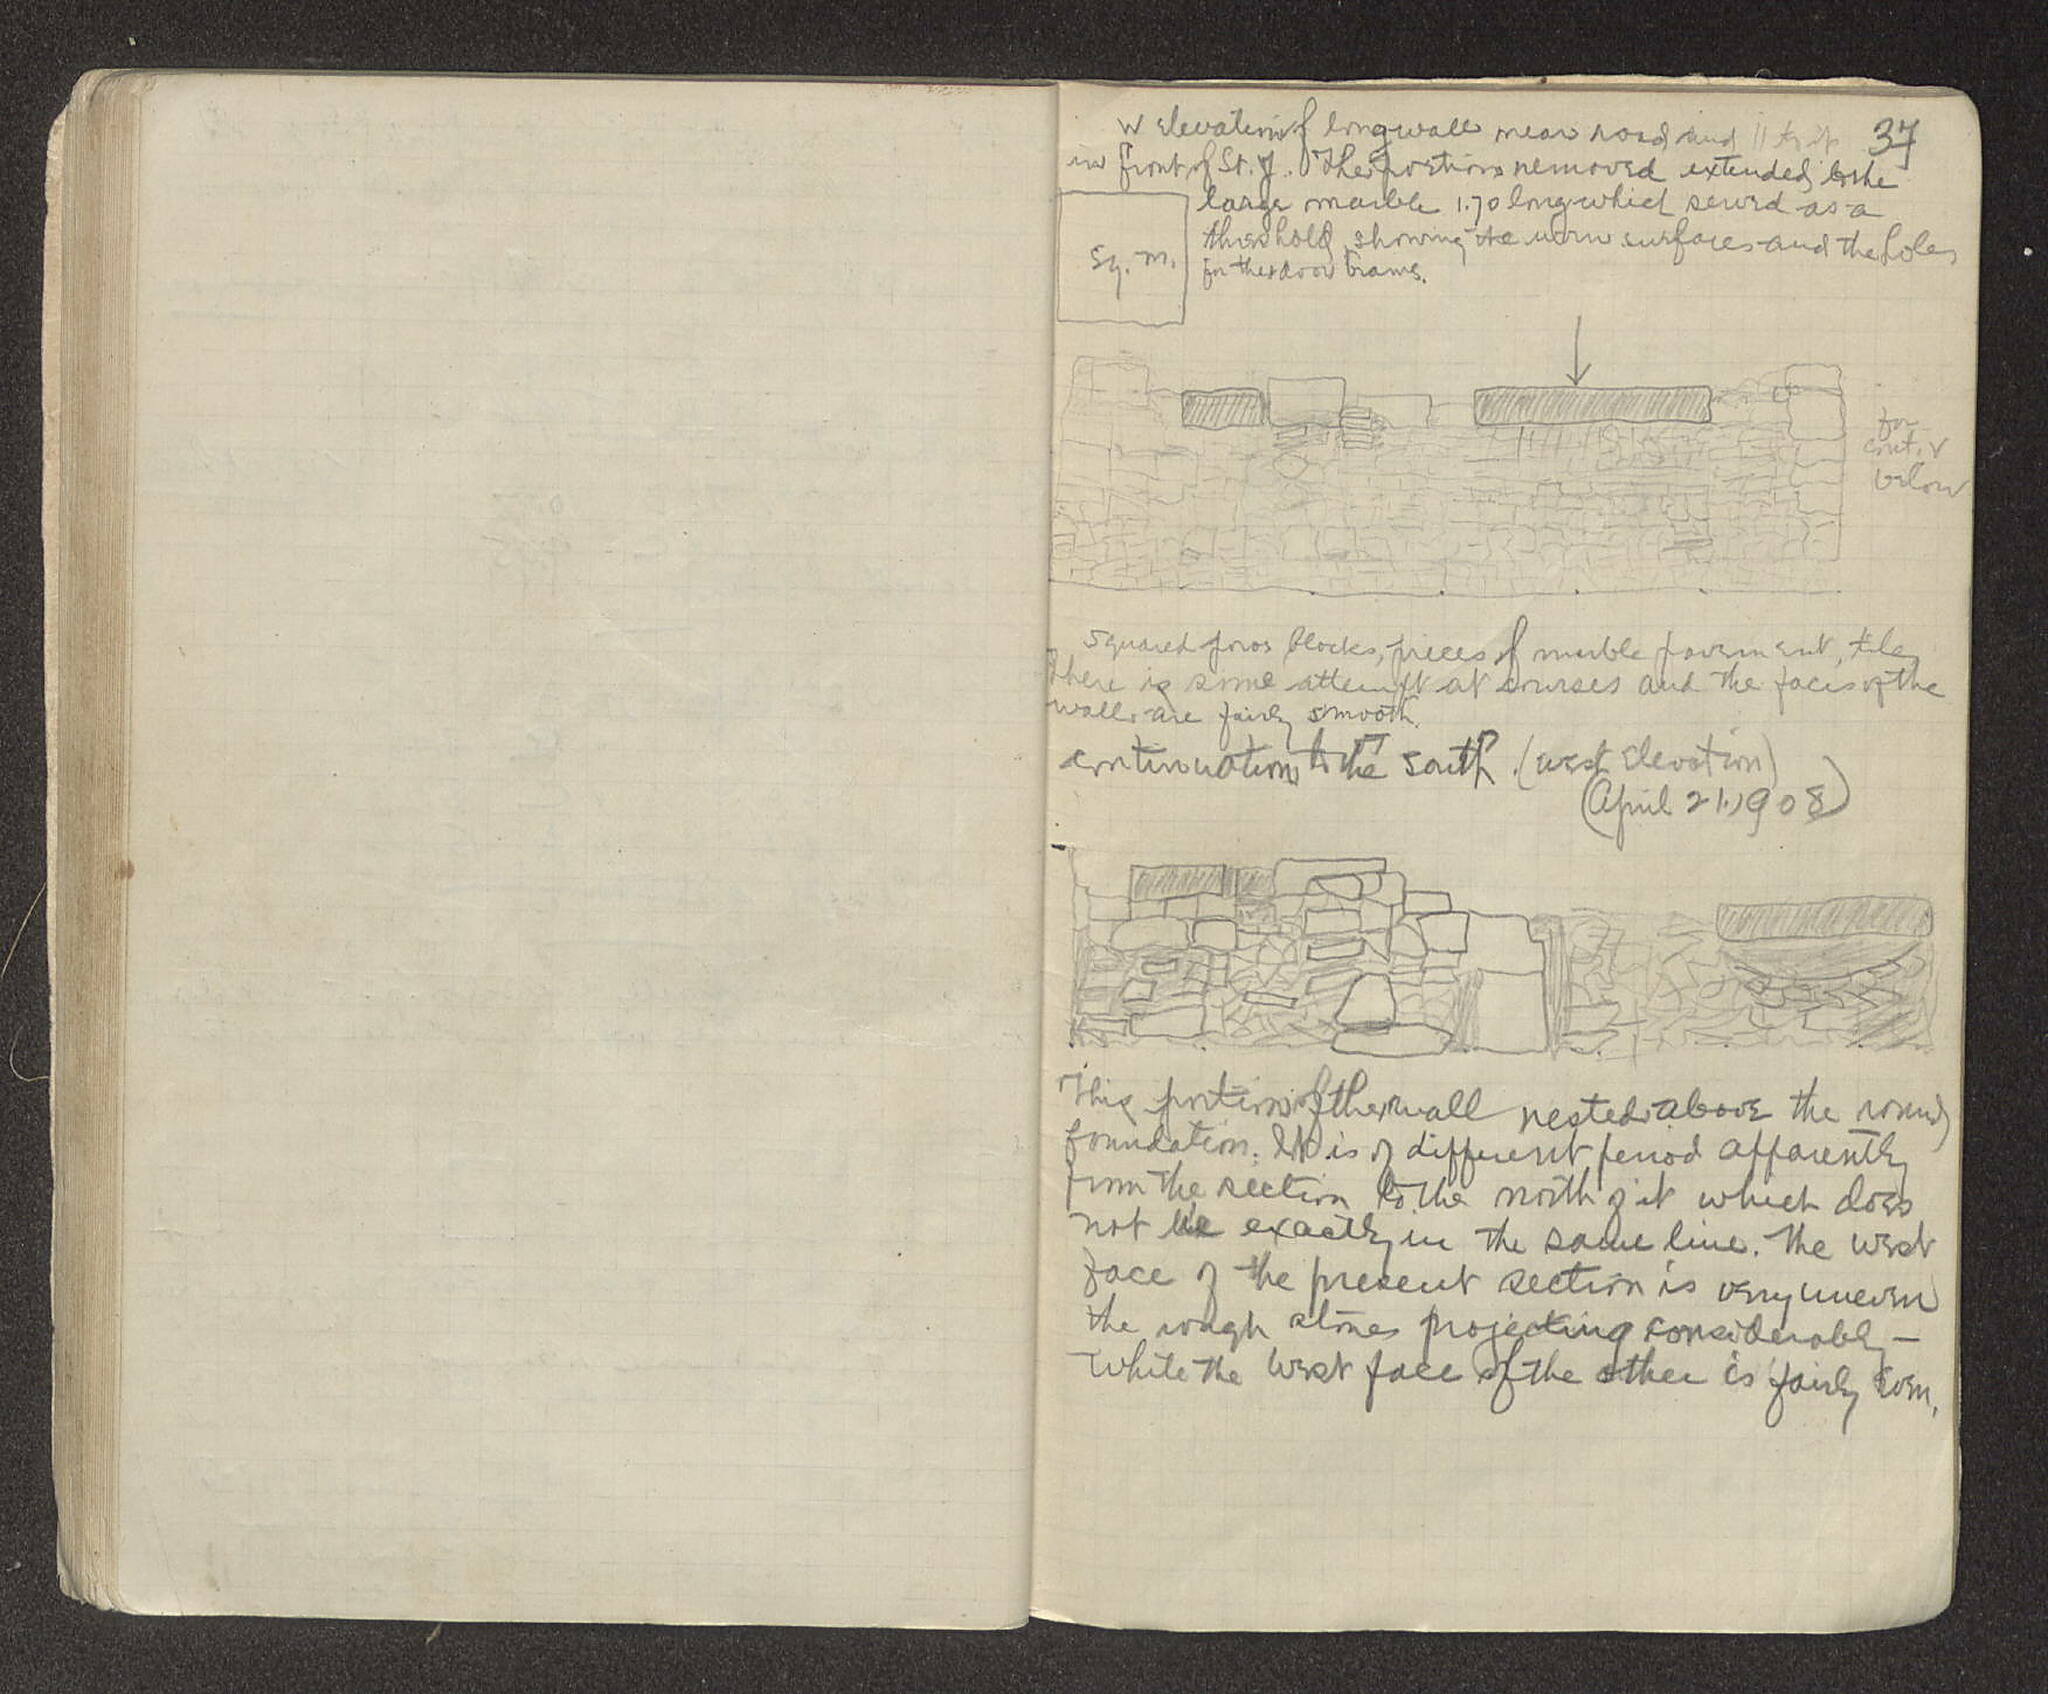 37
W elevation of long wall near road and || to it
in front of St. J. The portion removed extended to the
large marble 1.70 long which served as a
threshold showing the worn surfaces and the holes
for the door frame.
Sq. m.
for
cont. v
below
Squared poros blocks, pieces of marble pavement, tiles
there is some attempt at courses and the faces of the
wall are fairly smooth.
continuation to the south. (west elevation)
(April 21, 1908)
This portion of the wall rested above the round
foundation. It is of different period apparently
from the section to the north of it which does
not lie exactly in the same line. The west
face of the present section is very uneven
the rough stones projecting considerably —
while the west face of the other is fairly even.